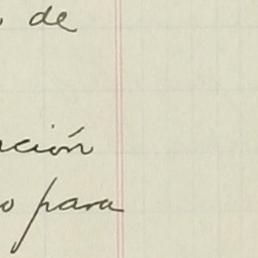 de
ción
o para